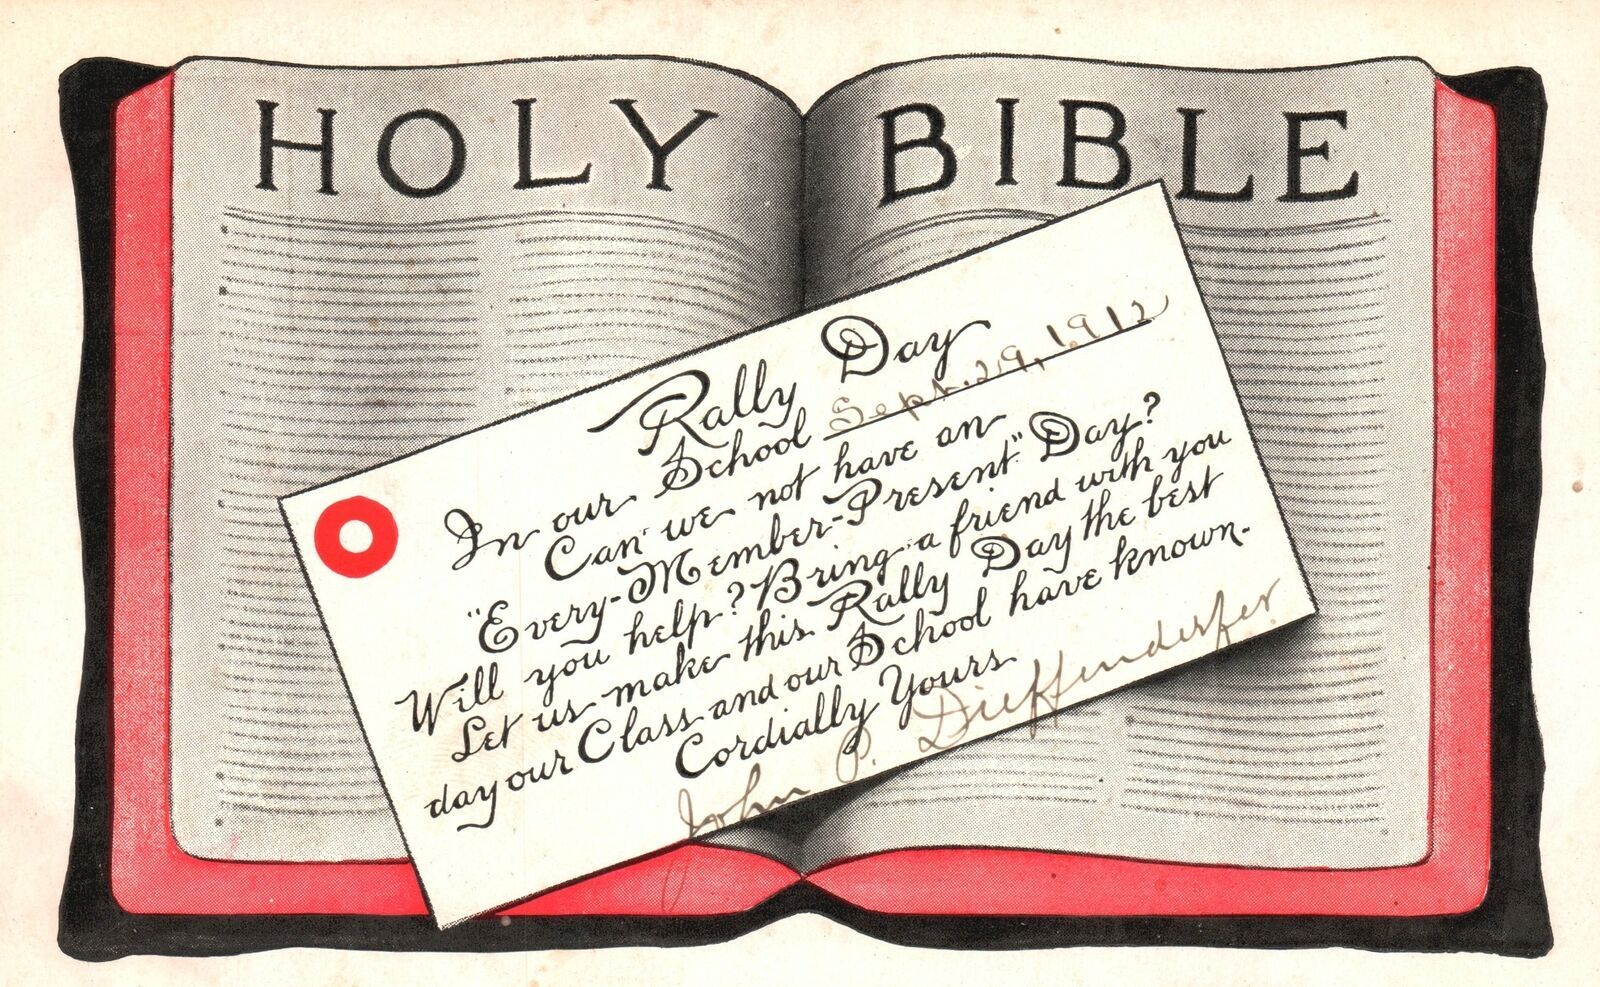 HOLY BIBLE
Rally Day
In our School Sept. 29, 1912
Can we not have an
"Every-Member-Present" Day?
Will you help? Bring a friend with you
Let us make this Rally Day the best
day our Class and our School have known.
Cordially Yours
John P. Dieffenderfer.